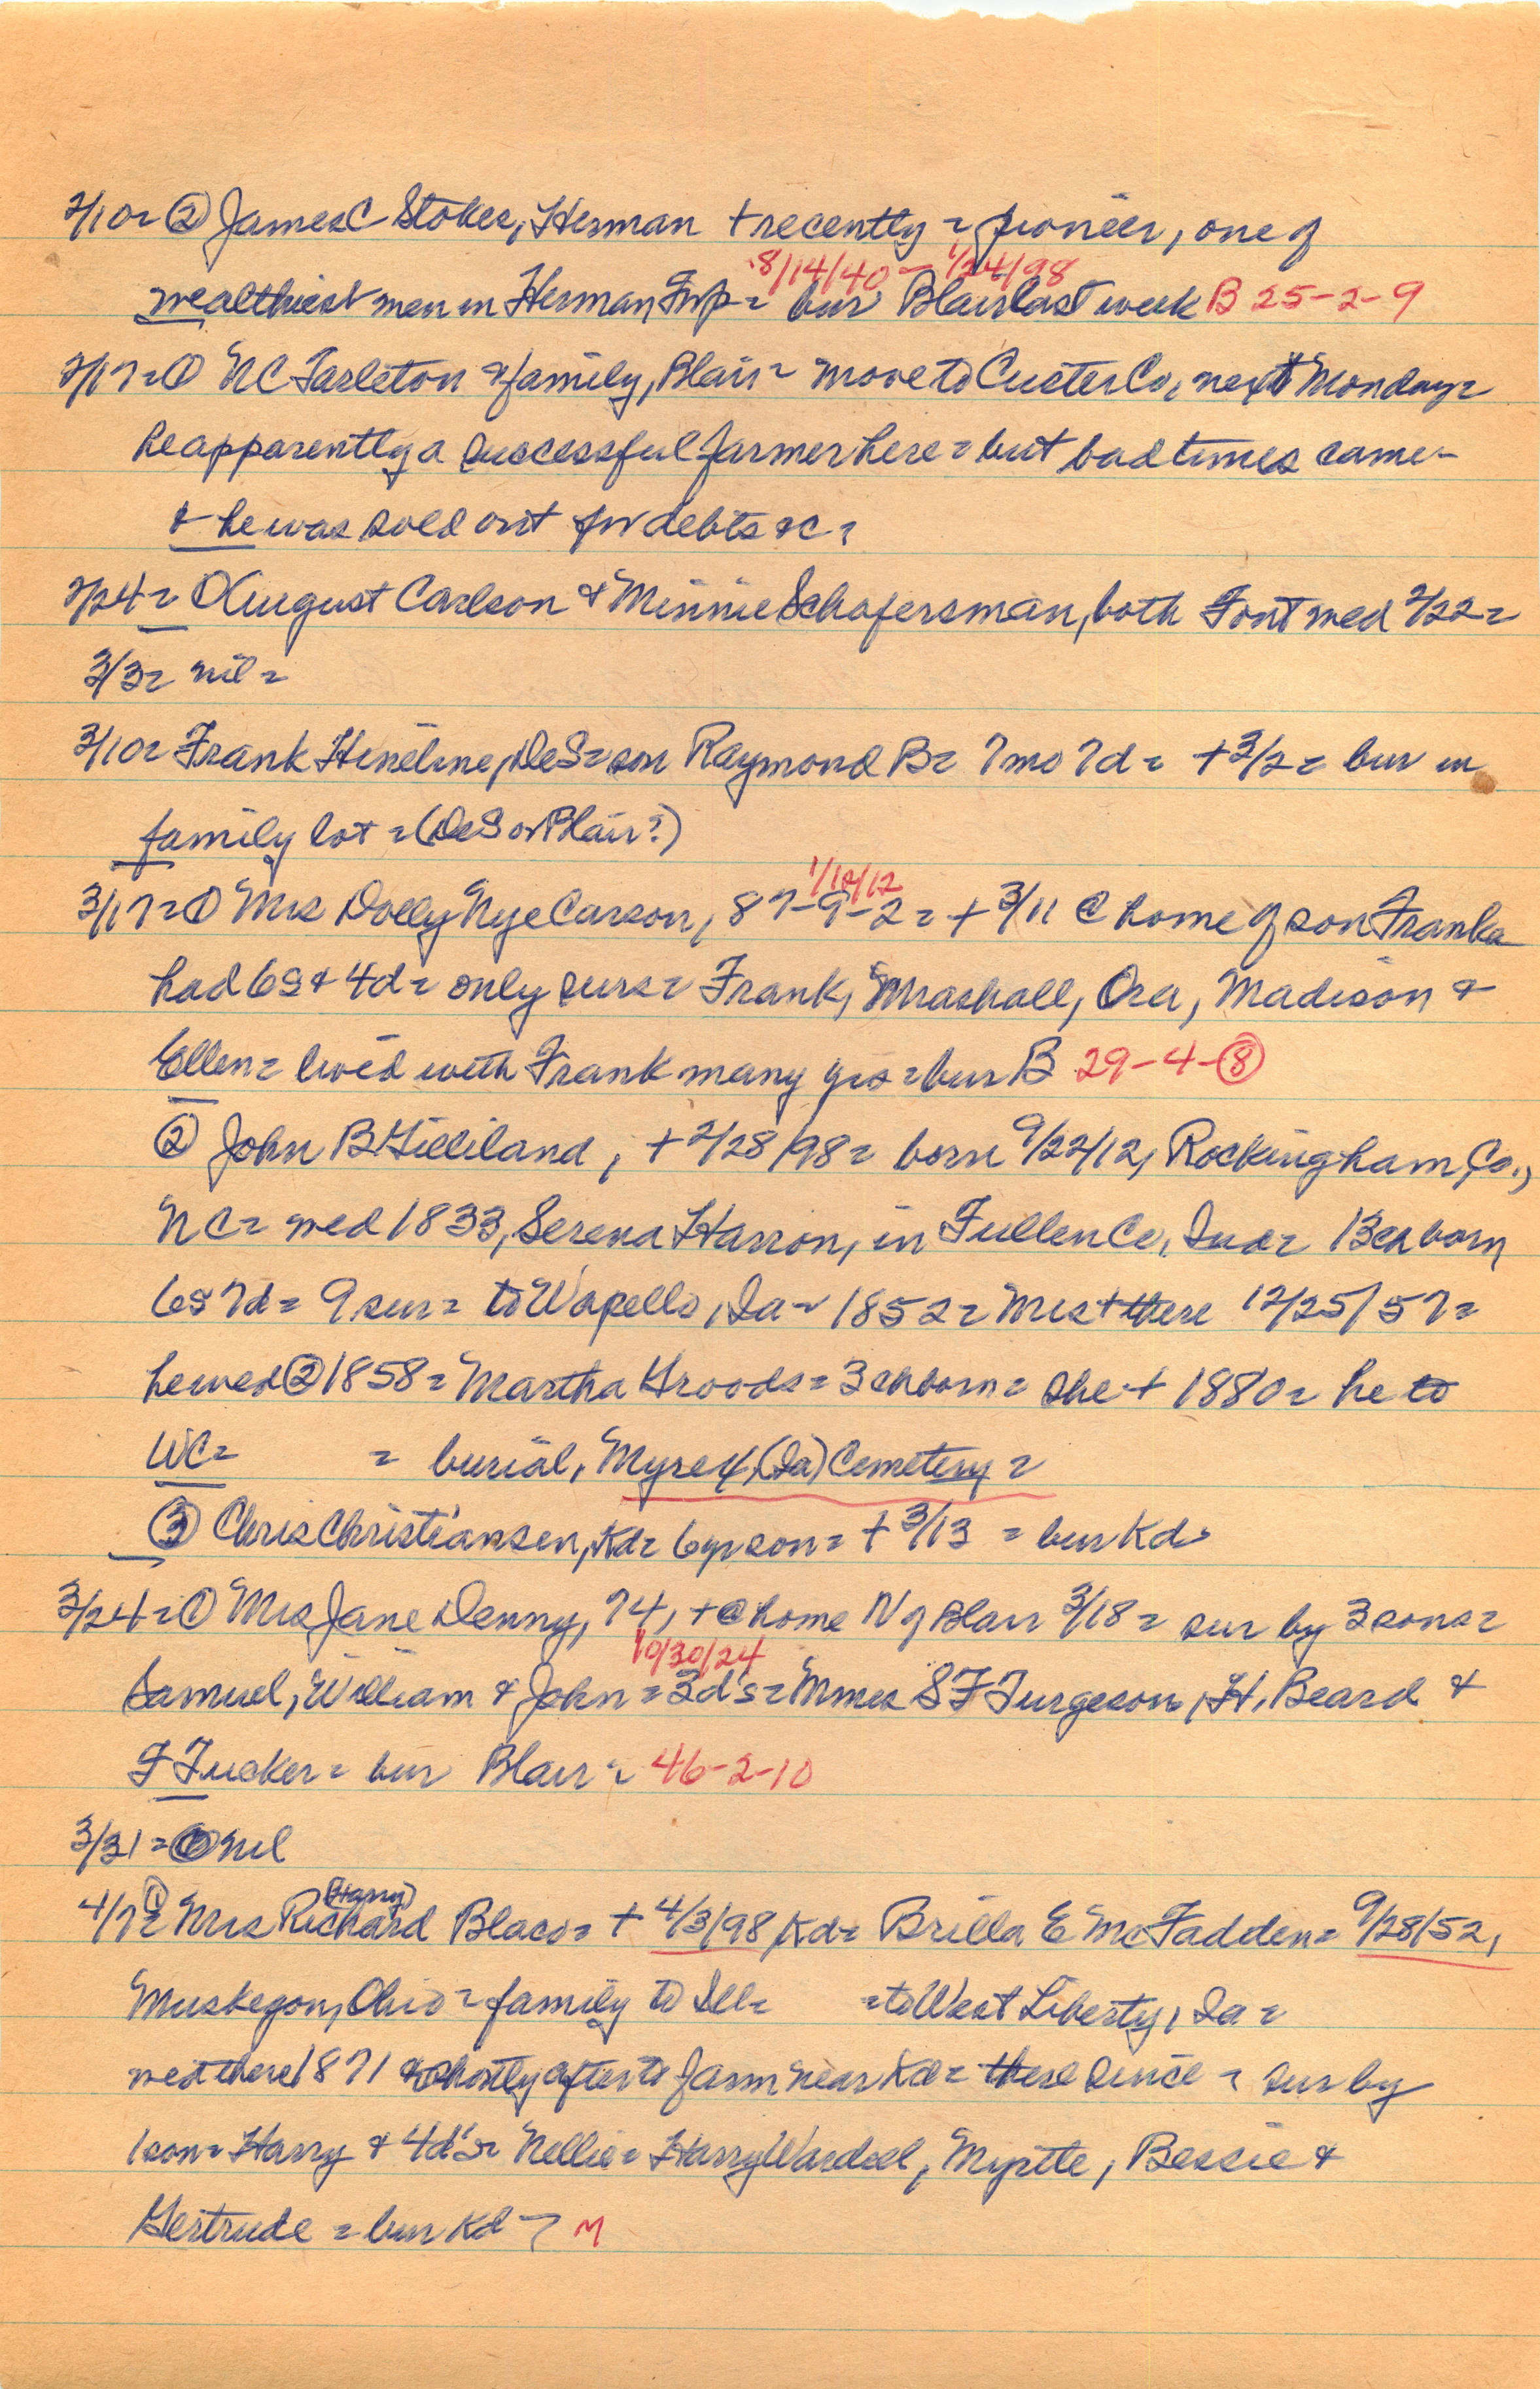 2/10= ② James C Stokes, Herman + recently = pioneer, one of
8/14/40 - 1/24/98
wealthiest men in Herman Twp = bur Blair last week B 25-2-9
2/17= ① NC Tarleton & family, Blair = move to Custer Co, next Monday =
he apparently a successful farmer here = but bad times came -
& he was sold out for debts &c =
2/24= ① August Carlson & Minnie Schafersman, both Font wed 2/22=
3/3= nil =
3/10= Frank Hineline, DeS= son Raymond B= 7 mo 7d = + 3/2= bur in
family lot = (DeS or Blair?)
3/17= ① Mrs Dolly Nye Carson, 87-9-2= + 3/11 @ home of son Frank=
had 6s & 4d= only surs= Frank, Mrashall, Ora, Madison &
Ellen= lived with Frank many yrs = bur B 29-4-⑧
② John B Gilliland, + 2/28/98= born 9/22/12, Rockingham, Co.,
NC= wed 1833, Serena Harron, in Fullen Co, Ind= 13 ch born,
6s 7d= 9 sur= to Wapello, Ia= 1852= Mrs + there 12/25/57=
he wed ② 1858= Martha Hroods= 3 ch born= she + 1880= he to
WC= = burial, Myrex, (Ia) Cemetery =
③ Chris Christiansen, Kd= 6 yr son= + 3/13 = bur Kd=
3/24= ① Mrs Jane Denny, 74, + @ home N of Blair 3/18= sur by 3 sons=
10/30/24
Samuel, William & John = 3 d's= Mmes S F Furgeson, H. Beard &
F Tucker= bur Blair= 46-2-10
3/31= ① nil
(Harry)
4/7= ① Mrs Richard Blaco= + 4/3/98, Kd= Brilla E McFadden= 9/28/52,
Muskegon, Ohio= family to Ill= = to West Liberty, Ia=
wed there 1871 & shortly after to farm near Kd= there since = sur by
1 son= Harry & 4d's= Nellie= Harry Wardell, Myrtle, Bessie &
Gertrude = bur Kd - M